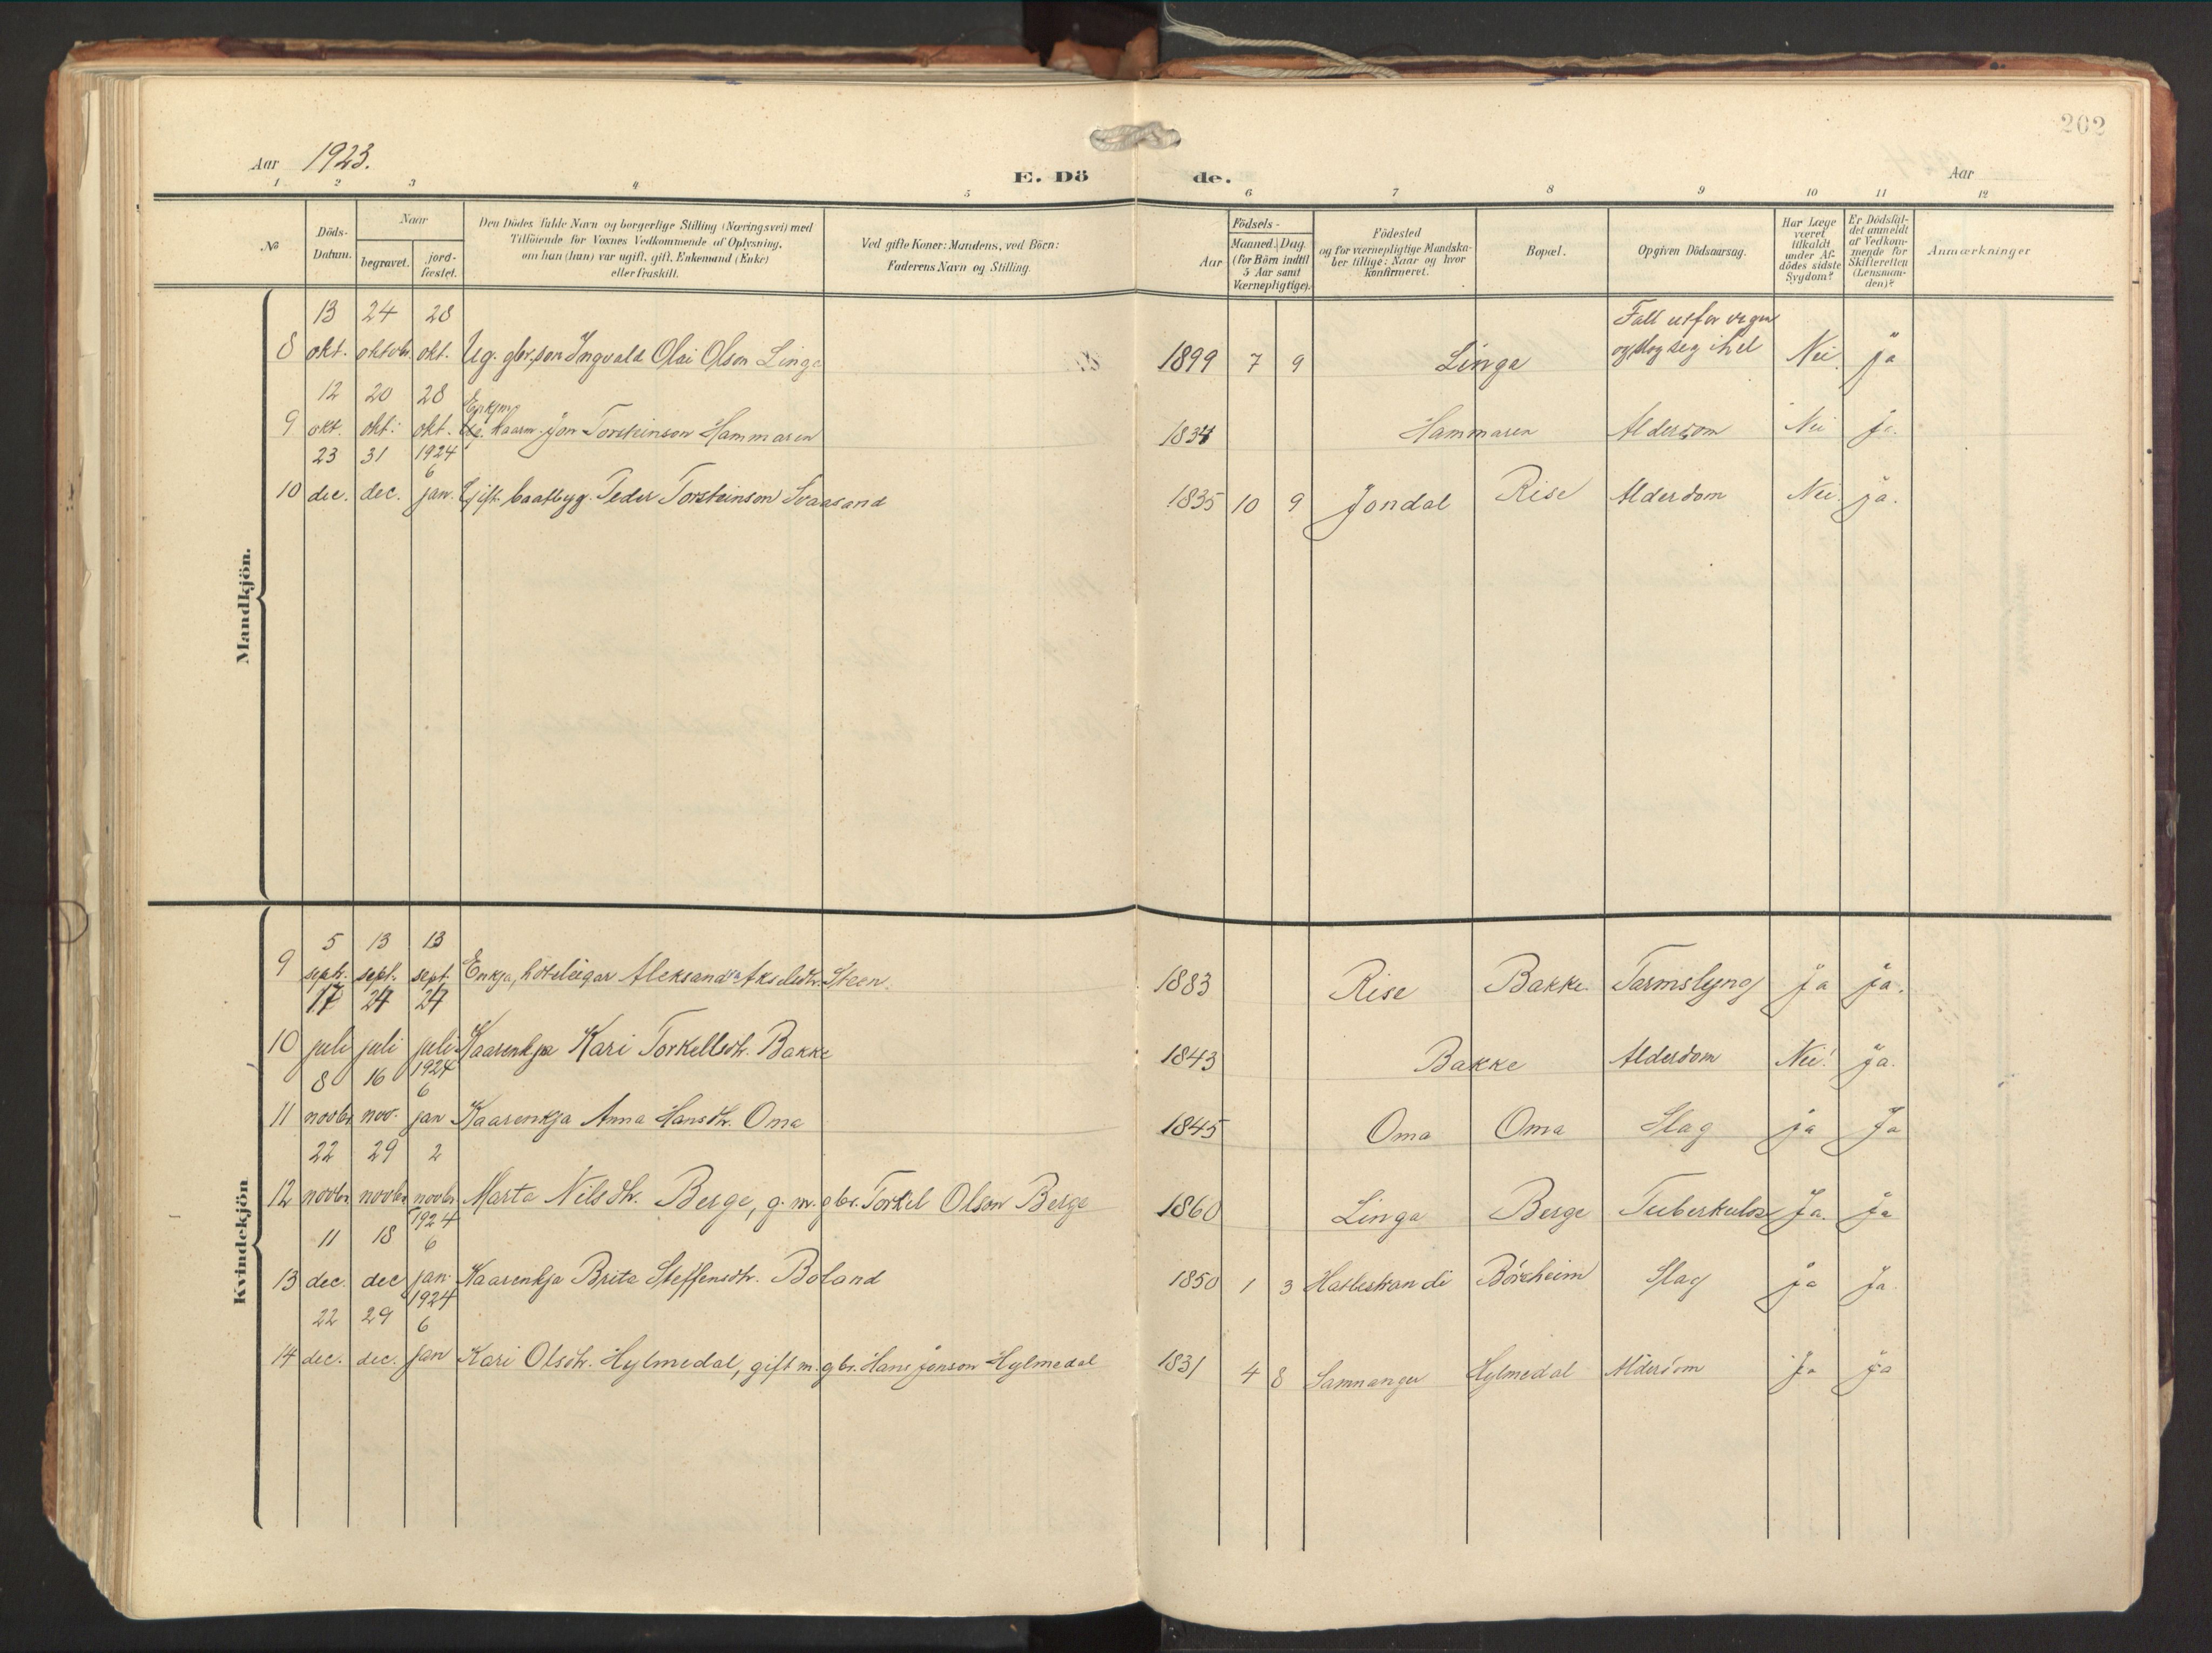 202
Aar 1923.
E. Dö de.
Aar
1 2 3 4 5 6 7 8 9 10 11 12
No
Döds-Datum.
Naar
begravet.
jord-fæstet.
Den Dödes fulde Navn og borgerlige Stilling (Næringsvei) med
Tilföiende for Voxnes Vedkommende af Oplysning,
om han (hun) var ugift, gift, Enkemand (Enke)
eller fraskilt.
Ved gifte Koner: Mandens, ved Börn:
Faderens Navn og Stilling.
Födsels-
Aar
Maaned. Dag.
(for Börn indtil
5 Aar samt
Værnepligtige).
Födested
og for værnepligtige Mandska-
ber tillige: Naar og hvor
Konfirmeret.
Bopæl.
Opgiven Dödsaarsag.
Har Læge
været
tilkaldt
under Af-
dödes sidste
Sygdom?
Er Dödsfal-
det anmeldt
af Vedkom-
mende for
Skifteretten
(Lensman-
den)?
Anmærkninger
Mandkjön.
13 24 28 Fall utfor vegen
8 okt. oktobr. okt. Ug. gbr. son Ingvald Olai Olson Linga 1899 7 9 Linga og slog seg ihel Nei ja
12 20 28 Enkjem.
9 okt. okt. okt. kaarm. Jon Torsteinson Hammaren 1834 Hammaren Alderdom Nei ja.
23 31 1924 6
10 dec. dec. jan. Gift. baatbyg. Peder Torsteinson Svaasand 1835 10 9 Jondal Rise Alderdom Nei. ja.
Kvindekjön
5 13 13
9 septr. sept. sept. Enkja, hoteleigar Aleksandra Akseldtr. Steen. 1883 Rise Bakke. Tarmslyng ja ja.
17 24 24
10 juli juli juli Kaarenkja Kari Torkellsdtr. Bakke 1843 Bakke Alderdom Nei! ja.
8 16 1924 6
11 novbr. nov. jan Kaarenkja Anna Hansdtr. Oma 1845 Oma Oma Slag ja Ja
22 29 2
12 novbr novbr novbr. Marta Nilsdtr. Berge, g. m. gbr. Torkel Olson Berge 1860 Linga Berge Tuberkulos Ja. Ja
11 18 1924 6
13 dec. dec jan. Kaarenkja Brita Steffensdtr. Boland 1850 1 3 Hatlestrandi Börsheim Slag ja Ja
22 29 1924 6
14 dec. dec. jan Kari Olsdtr. Hylmedal, gift m. gbr. Hans Jonson Hylmedal 1831 4 8 Samnanger Hylmedal Alderdom Ja Ja